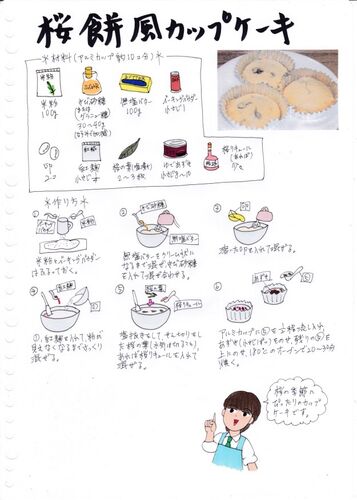 桜餅風カップケーキ
※材料(アルミカップ約10コ分)※
米粉
米粉
100g
きび砂糖
または
グラニュー糖
30〜40g
無塩バター
100g
ベーキングパウダー
小さじ1
卵
2コ
紅麹
紅麹
桜の葉(塩漬け)
2〜3枚
ゆであずき
桜リキュール
(あれば)
少々
※作り方※
①
米粉
米粉とベーキングパウダー
はふるっておく。
②
きび砂糖
無塩バター
無塩バターをクリーム状に
なるまで混ぜ、きび砂糖
を入れて混ぜ合わせる。
③
卵
溶いた卵を入れて混ぜる。
④
紅麹
①
①、紅麹を入れて、粉が
見えなくなるまでさっくり
混ぜる。
⑤
桜の葉
桜リキュール
塩抜きをして、せん切りにし
た桜の葉
あれば桜リキュールを入れて
混ぜる。
⑥
あずき
アルミカップに⑤を
あずき
上にのせ、180℃のオーブンで20〜30分
焼く。
桜の季節に
ぴったりのカップ
ケーキです。